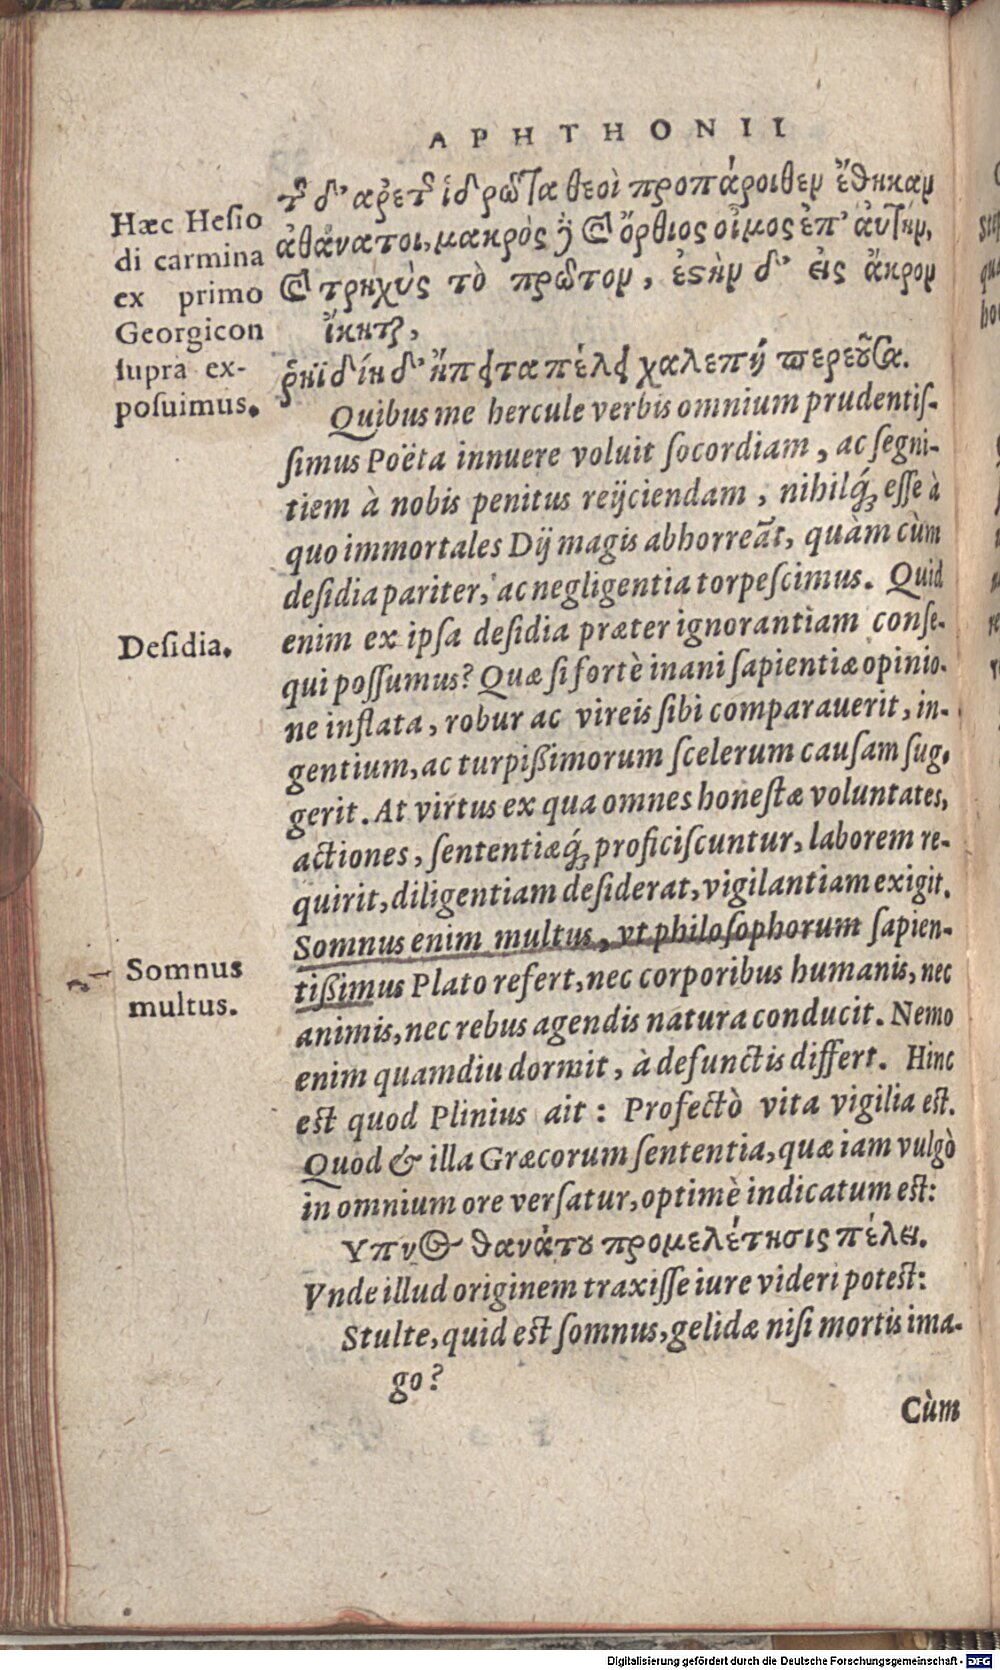 APHTHONII
τῆς δ' ἀρετῆς ἱδρῶτα θεοὶ προπάροιθεν ἔθηκαν
ἀθάνατοι, μακρὸς ἢ καὶ ὄρθιος οἶμος ἐπ' ἀυτὴν,
καὶ τρηχὺς τὸ πρῶτον, ἐπὴν δ' εἰς ἄκρον
ἵκηται,
ῥηϊδίη δ' ἤπειτα πέλει χαλεπή περ ἐοῦσα.
Quibus me hercule verbis omnium prudentiſ-
ſimus Poëta innuere voluit ſocordiam, ac ſegni-
tiem à nobis penitus reijciendam, nihilq́ꝫ eſſe à
quo immortales Dij magis abhorreãt, quàm cùm
deſidia pariter, ac negligentia torpeſcimus. Quid
enim ex ipſa deſidia præter ignorantiam conſe-
qui poſſumus? Quæ ſi fortè inani ſapientiæ opinio-
ne inflata, robur ac vireis ſibi comparauerit, in-
gentium, ac turpißimorum ſcelerum cauſam ſug-
gerit. At virtus ex qua omnes honeſtæ voluntates,
actiones, ſententiæq́ꝫ proficiſcuntur, laborem re-
quirit, diligentiam deſiderat, vigilantiam exigit.
Somnus enim multus, vt philoſophorum ſapien-
tißimus Plato refert, nec corporibus humanis, nec
animis, nec rebus agendis natura conducit. Nemo
enim quamdiu dormit, à defunctis differt. Hinc
est quod Plinius ait: Profectò vita vigilia est.
Quod & illa Græcorum ſententia, quæ iam vulgò
in omnium ore verſatur, optimè indicatum est:
Υπνος θανάτου προμελέτησις πέλει.
Vnde illud originem traxiſſe iure videri potest:
Stulte, quid est ſomnus, gelidæ niſi mortis ima-
go?
Cùm
Hæc Heſio
di carmina
ex primo
Georgicon
ſupra ex-
poſuimus.
Deſidia.
Somnus
multus.
Digitalisierung gefördert durch die Deutsche Forschungsgemeinschaft - DFG